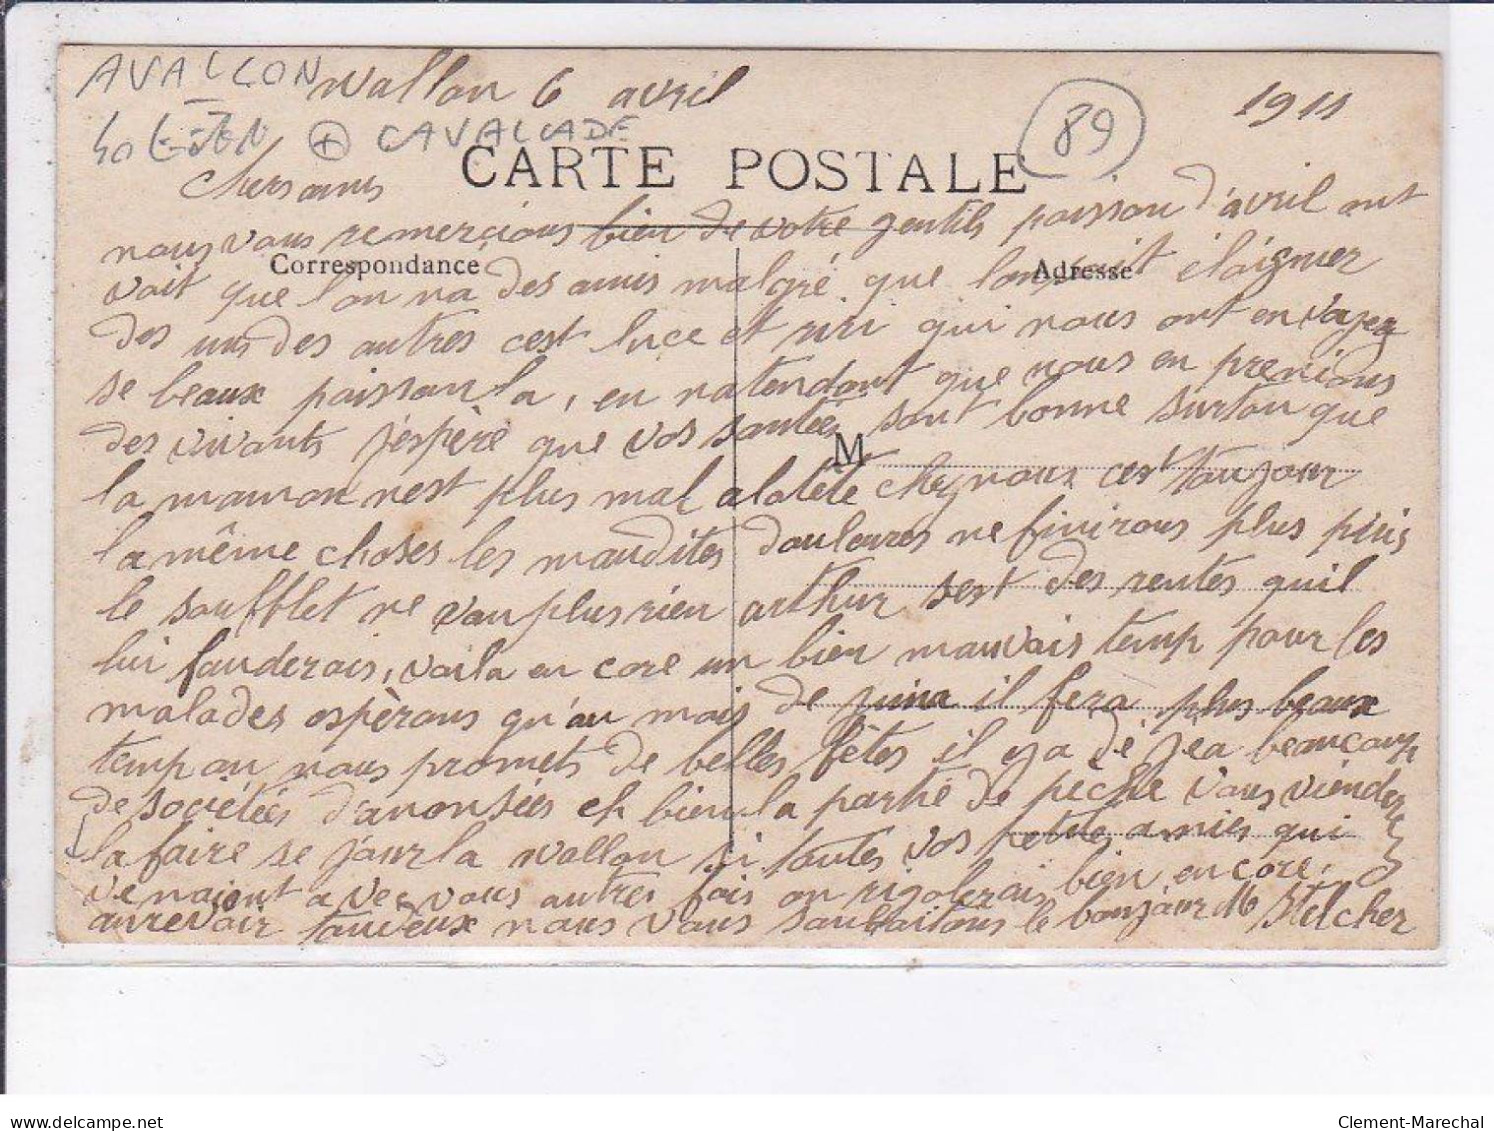 AVALLON
wallon 6 avril 1911
⊕ CAVALCADE
89
CARTE POSTALE
Chers amis
nous vous remercions bien de votre gentils poisson d'avril ont
Correspondance
Adresse
voit que lon na des amis malgré que lon soit éloigner
des uns des autres cest luce et riri qui nous ont envoyez
se beaux poisson la, en natendant que nous en prenions
des vivants j'espère que vos santées sont bonne surtou que
M
la maman nest plus mal alatéte chez nous ces toujour
la même choses les maudites douloures ne finirons plus puis
le soufflet ne vau plus rien arthur sest des rentes quil
lui fauderais, voila en core un bien mauvais temp pour les
malades espèrons qu'au mois de juin il fera plus beaux
temp on nous promets de belles fêtes il y a dé jea beaucoup
de sociétées d'anonsées eh bien la partie de pèche vous vienderez
la faire se jour la wallon si toutes vos petites amies qui
venaient avec vous autres fois on rigolerais bien en core,
aurevoir touteux nous vous souhaitons le bonjour M Stelcher
Clement-Marechal